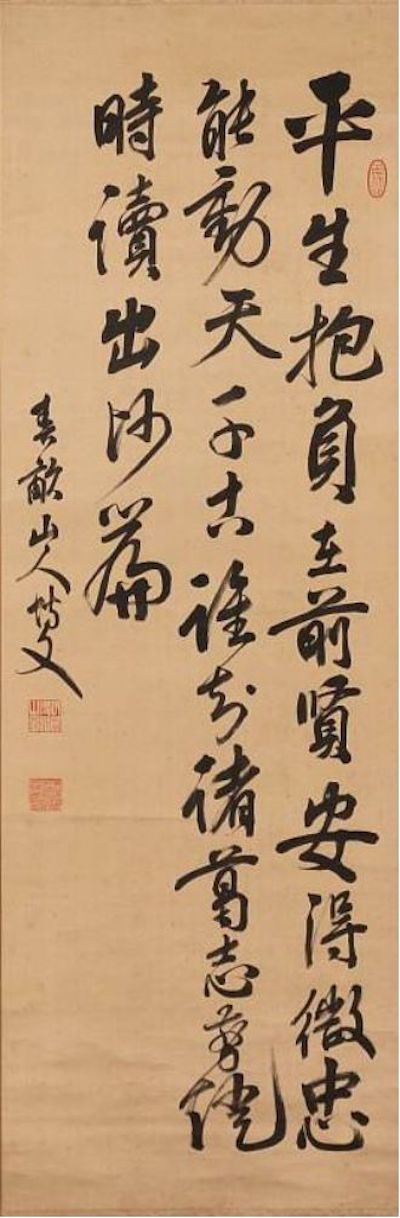 平生抱負在前賢安得微忠
能動天千古誰知諸葛志剪燈
時讀出師篇
春畝山人博文